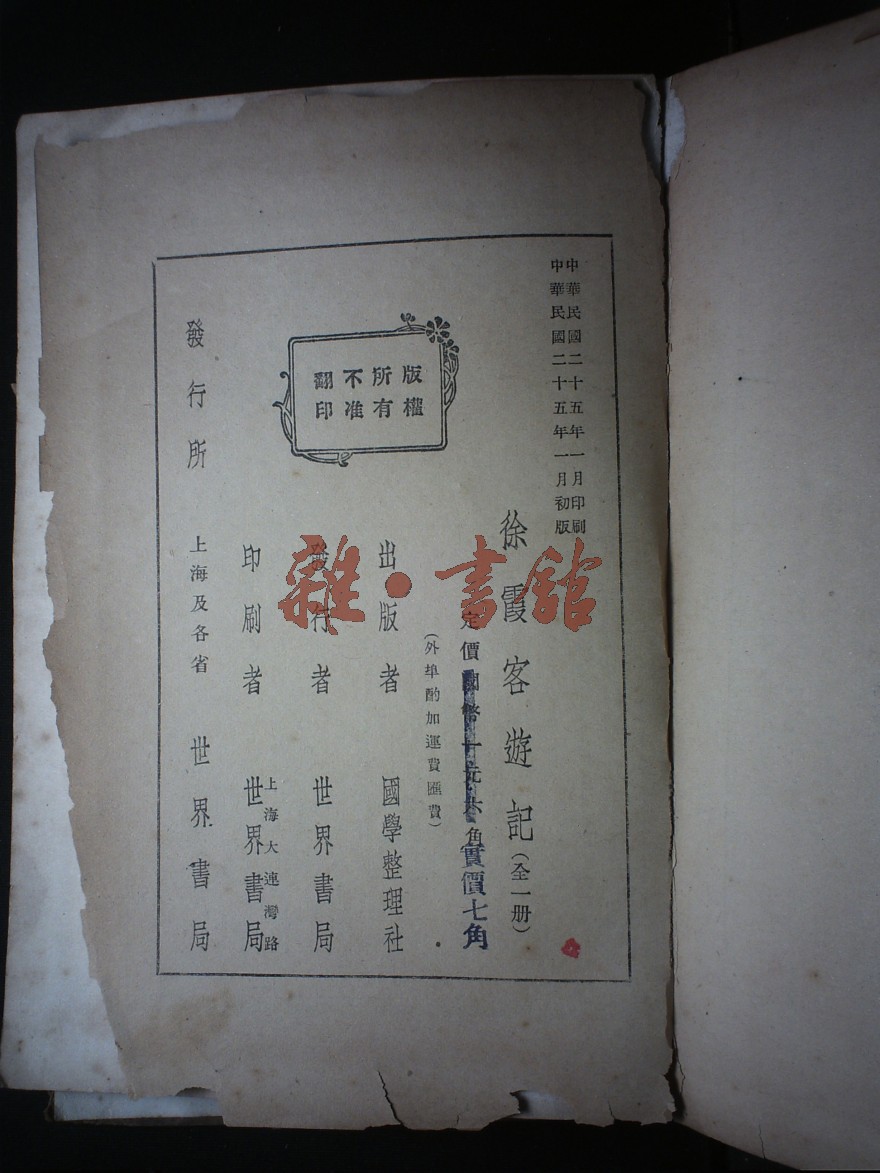 中華民國二十五年一月印刷
中華民國二十五年一月初版
徐霞客遊記(全一册)
定價國幣十元六角
實價七角
(外埠酌加運費匯費)
版權
所有
不准
翻印
出版者 國學整理社
發行者 世界書局
上海大連灣路
印刷者 世界書局
發行所 上海及各省 世界書局
雜·書館